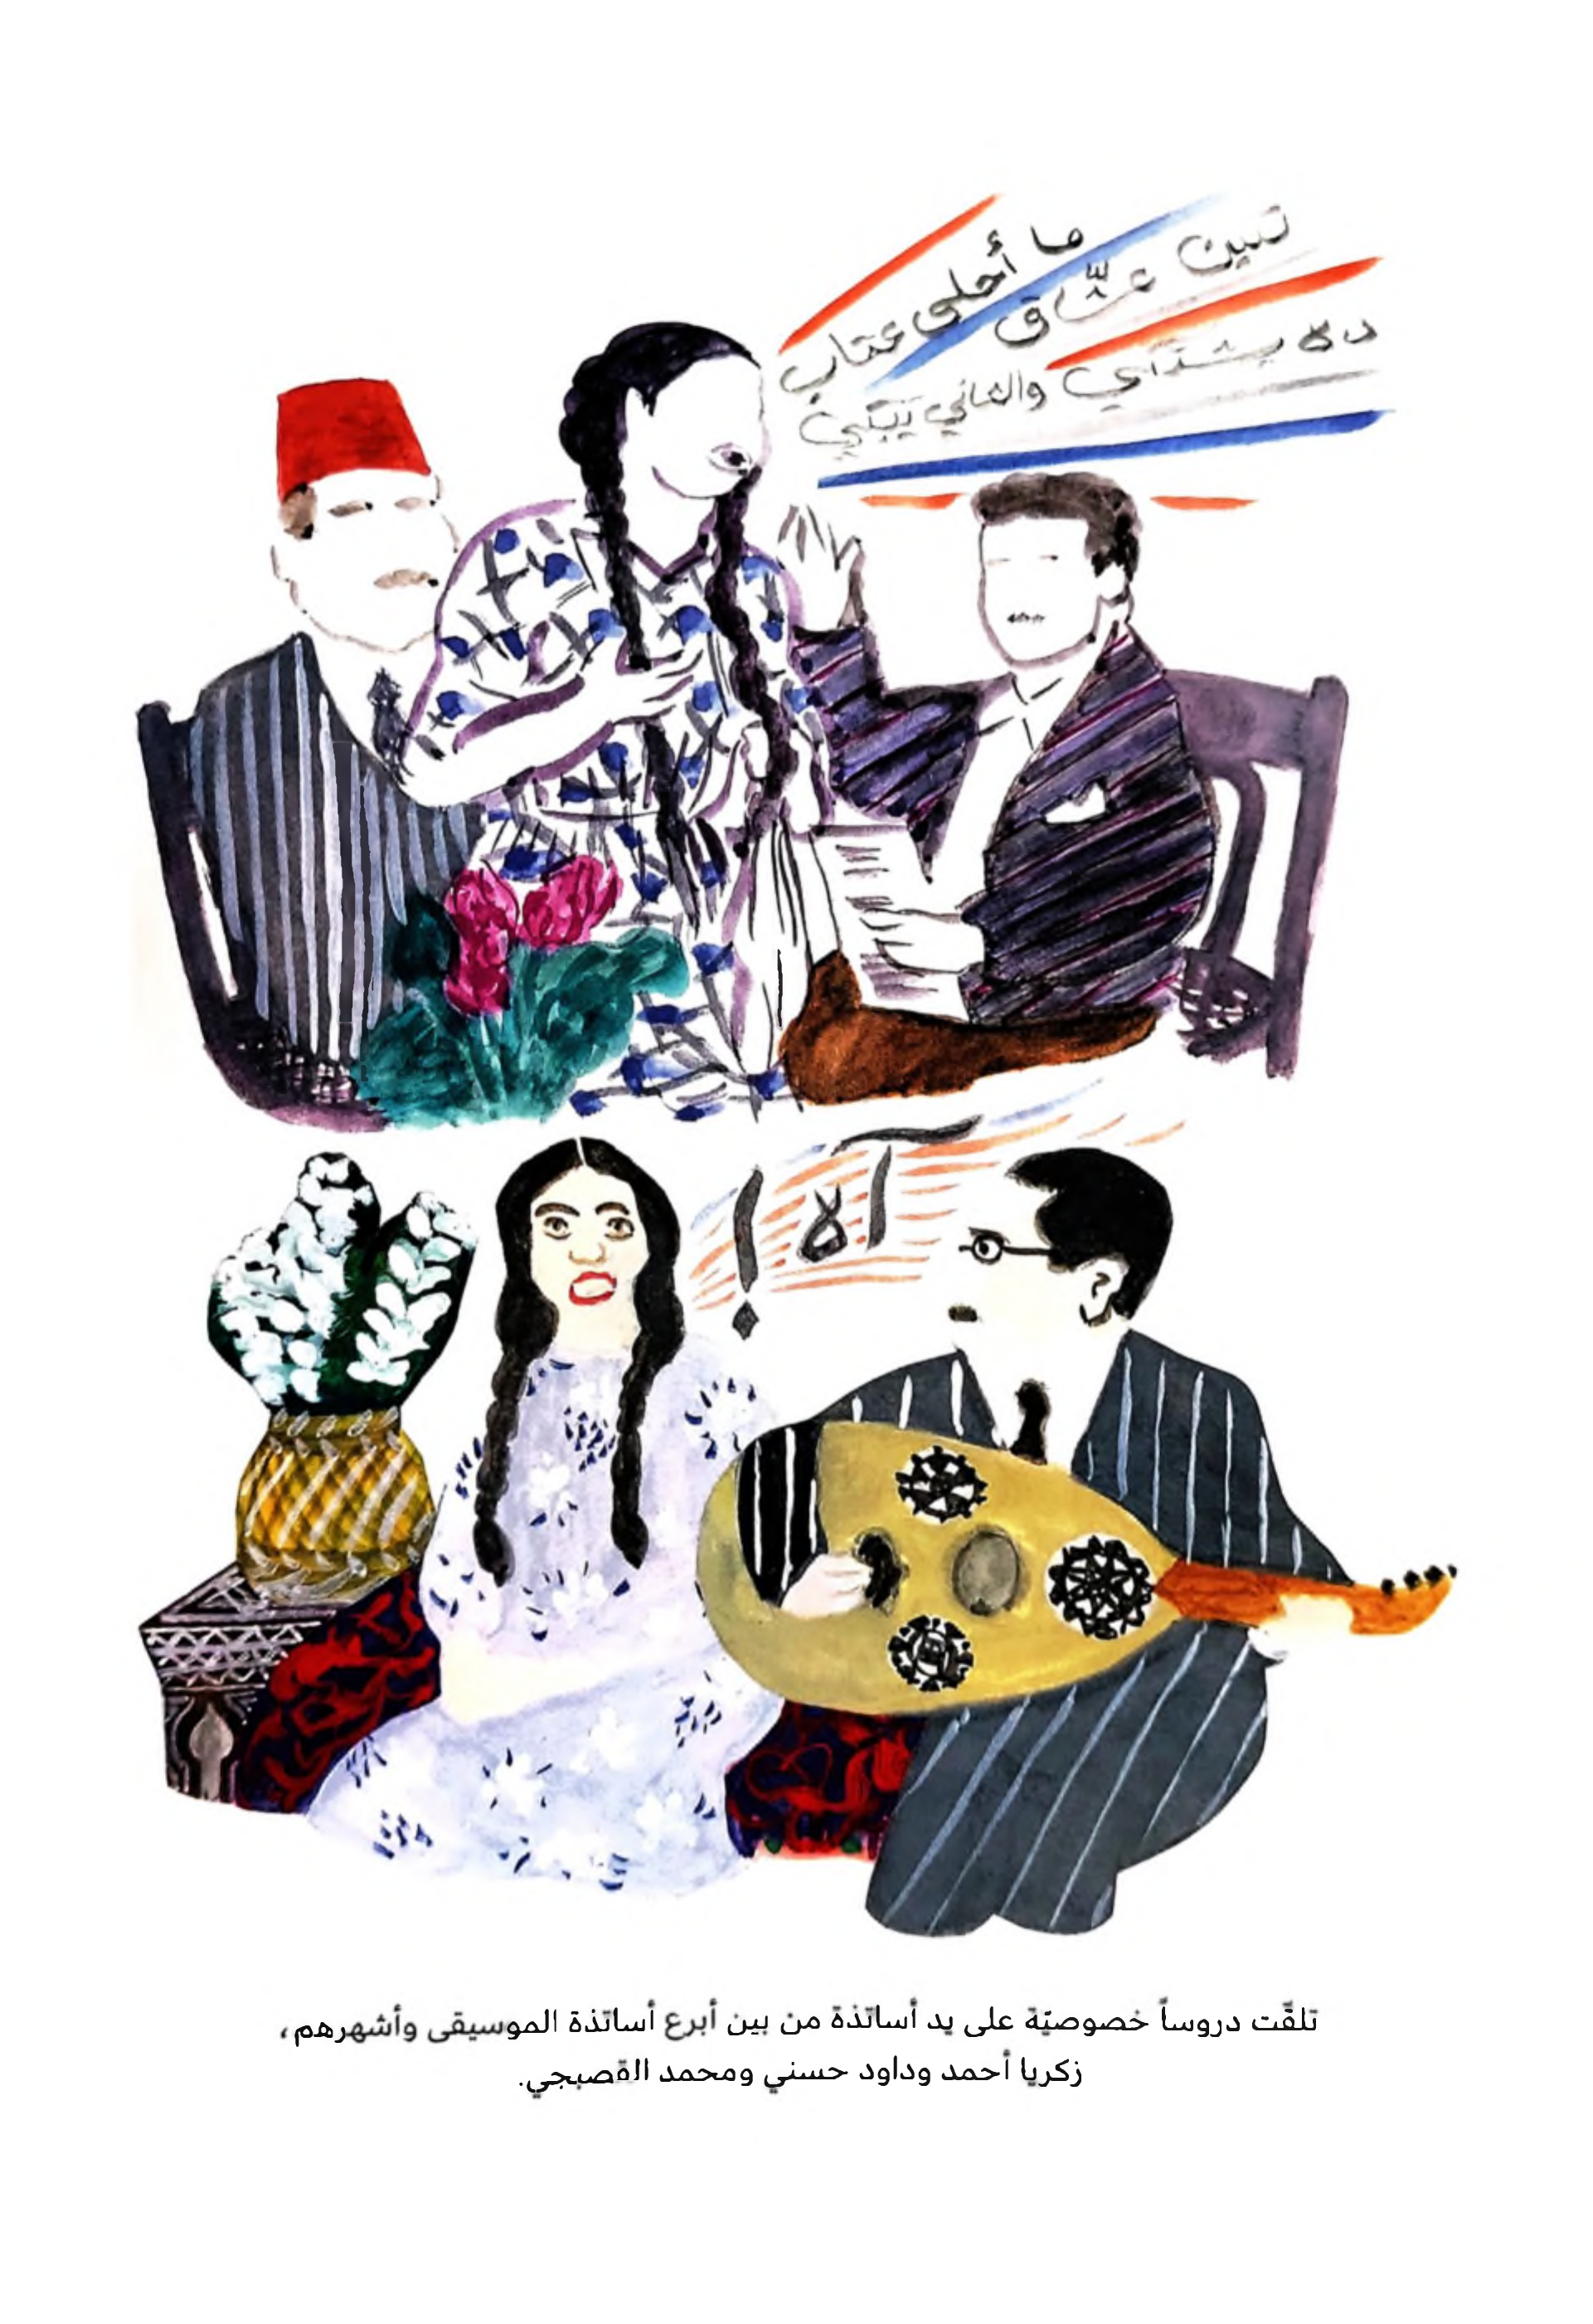 ما أحلى عتاب
تنين عشّاق
ده يشتكي والتاني يبكي
آه!
تلقّت دروساً خصوصيّة على يد أساتذة من بين أبرع أساتذة الموسيقى وأشهرهم،
زكريا أحمد وداود حسني ومحمد القصبجي.